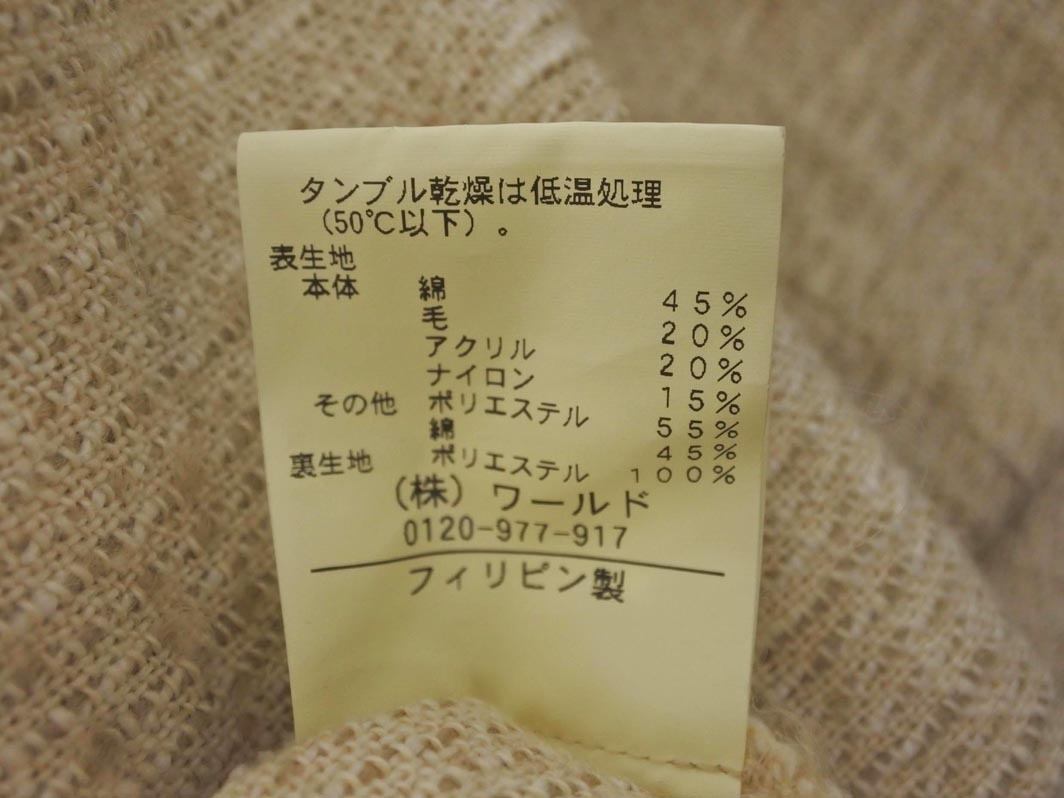 タンブル乾燥は低温処理
(50℃以下)。
表生地
本体 綿 45%
毛 20%
アクリル 20%
ナイロン 15%
その他 ポリエステル 55%
綿 45%
裏生地 ポリエステル 100%
(株) ワールド
0120-977-917
フィリピン製